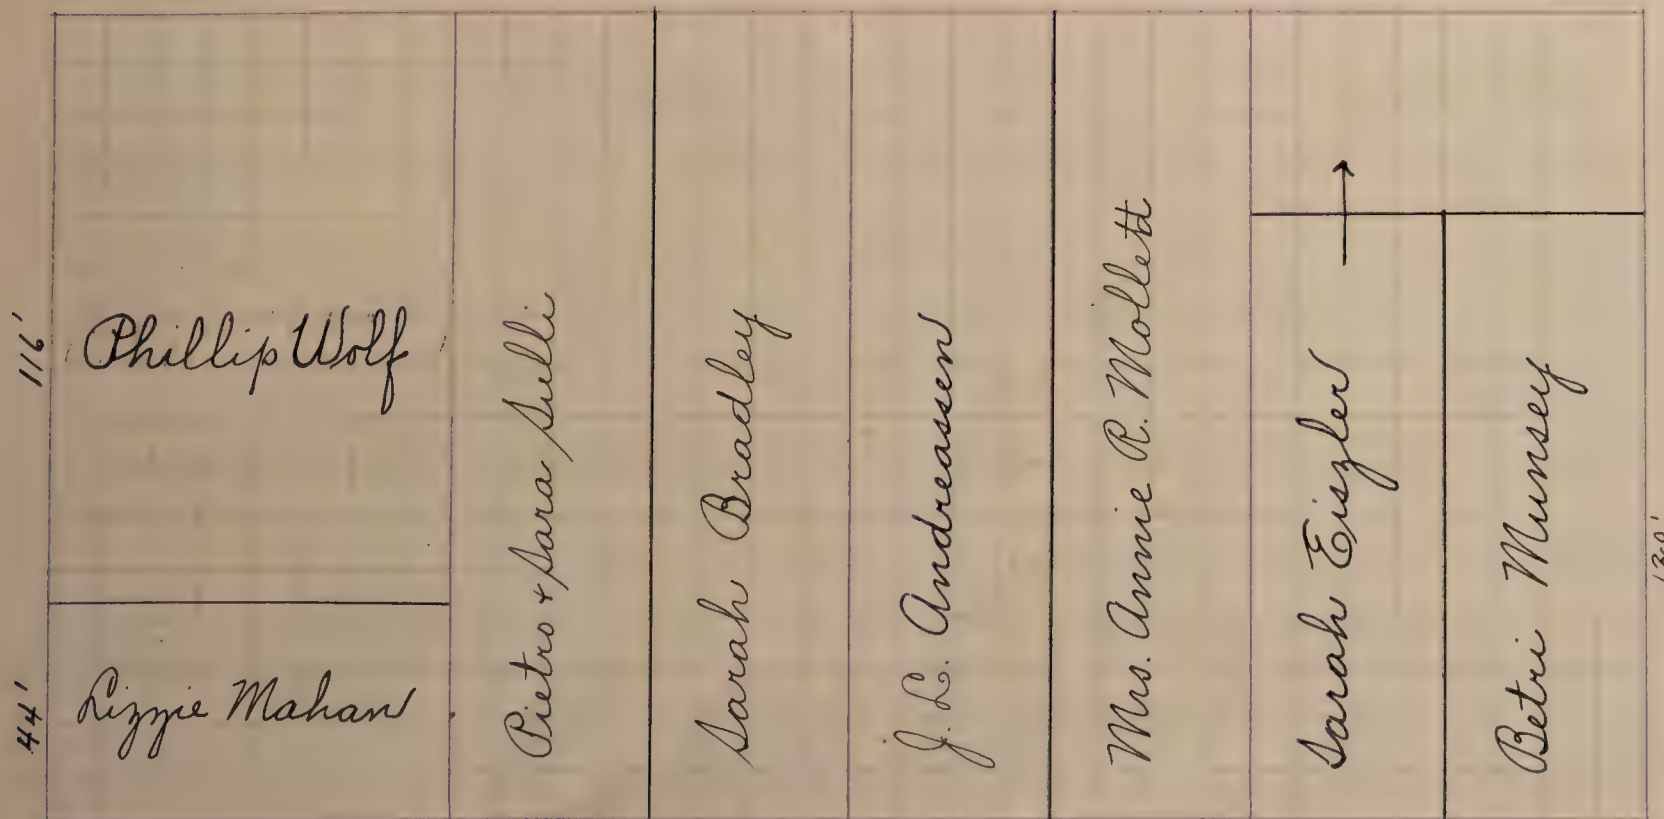 116'
Phillip Wolf
44'
Lizzie Mahan
Pietro + Sara Sulli
Sarah Bradley
J. L. Andreassen
Mrs. Annie R. Mollett
Sarah Eiszler
Betri Munsey